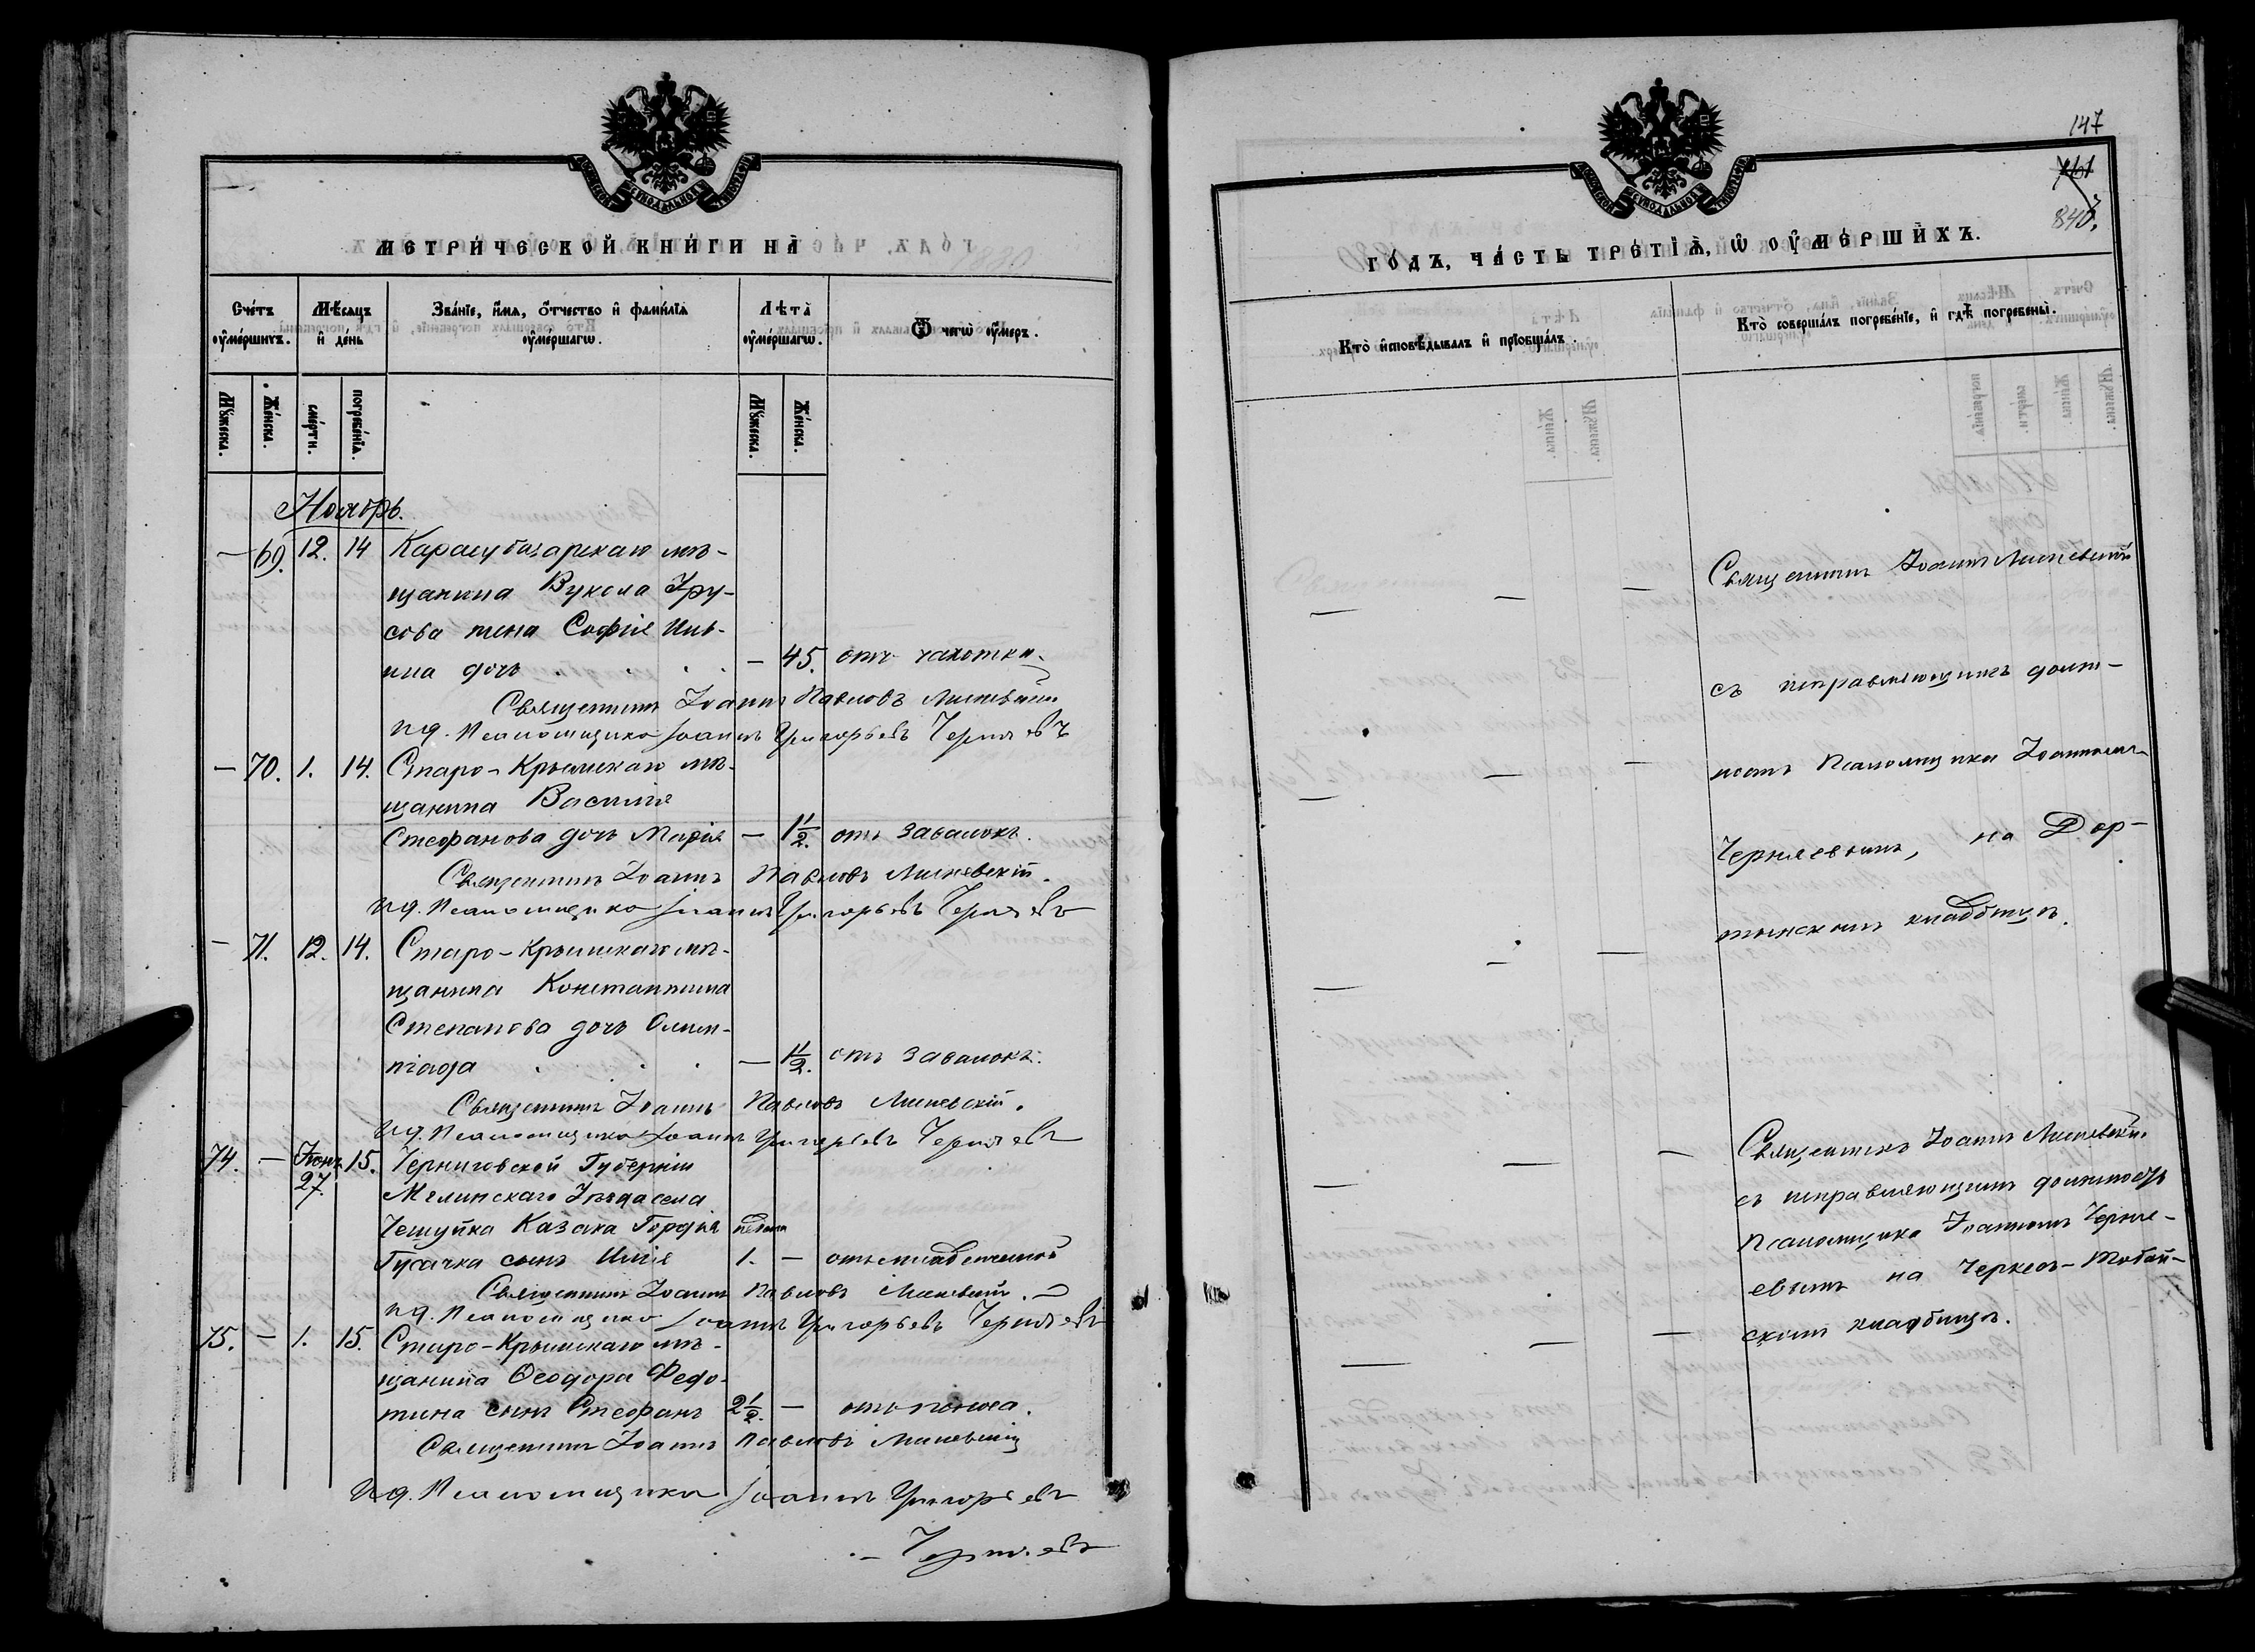 МЕТРИ́ЧЕСКОЙ КНИ́ГИ НА̀
Сче́тъ ᲂу҆ме́ршихъ.
Мѣ́сяцъ и҆ де́нь
Зва́нїе, и҆́мя, ѻ҆́тчество и҆ фами́лїя ᲂу҆ме́ршагѡ.
Лѣ́та ᲂу҆ме́ршагѡ.
Ѿ чегѡ̀ ᲂу҆́меръ.
Мꙋ́жеска.
Же́нска.
сме́рти.
погребе́нїя.
Мꙋ́жеска.
Же́нска.
Ноябрь.
— 69. 12. 14 Карасубазарскаго мѣ-
щанина Вукола Тру-
сова жена Софія Иль-
ина дочь . . . — 45. отъ чахотки.
Священникъ Іоаннъ Павловъ
И д. Псаломщика Іоаннъ Григорьевъ Черняевъ
— 70. 1. 14. Старо-Крымскаго мѣ-
щанина Василія
Стефанова дочь Марія — 1 1/2. отъ завалокъ.
Священникъ Іоаннъ Павловъ
И д. Псаломщика Іоаннъ Григорьевъ Черняевъ
— 71. 12. 14. Старо-Крымскаго мѣ-
щанина Константина
Степанова дочь Олим-
піада . . . — 1/2. отъ завалокъ.
Священникъ Іоаннъ Павловъ
И д. Псаломщика Іоаннъ Григорьевъ Черняевъ
74. — 27. 15. Черниговской Губерніи
Мглинскаго Уѣзда села
Чешуйка Казака Гордѣя
Гусачка сынъ Илія 1. —
Священникъ Іоаннъ Павловъ
И д. Псаломщика Іоаннъ Григорьевъ Черняевъ
75. — 1. 15. Старо-Крымскаго мѣ-
щанина Ѳеодора Федо-
тина сынъ Стефанъ 2 1/2. — отъ поноса.
Священникъ Іоаннъ Павловъ
И д. Псаломщика Іоаннъ Григорьевъ
Черняевъ
147
840.
ГО́ДЪ, ЧА́СТЬ ТРЕ́ТЇѦ, Ѡ҆ ᲂУ҆МЕ́РШИХЪ.
Кто̀ и҆сповѣ́дывалъ и҆ прїобща́лъ.
Кто̀ соверша́лъ погребе́нїе, и҆ гдѣ̀ погребены̀.
Священникъ Іоаннъ
съ исправляющимъ долж-
ность Псаломщика Іоанномъ
Черняевымъ, на Пор-
кладбищѣ.
Священникъ Іоаннъ
съ исправляющимъ должность
Псаломщика Іоанномъ Черня-
евымъ на Черкесъ-Тобай-
скомъ кладбищѣ.